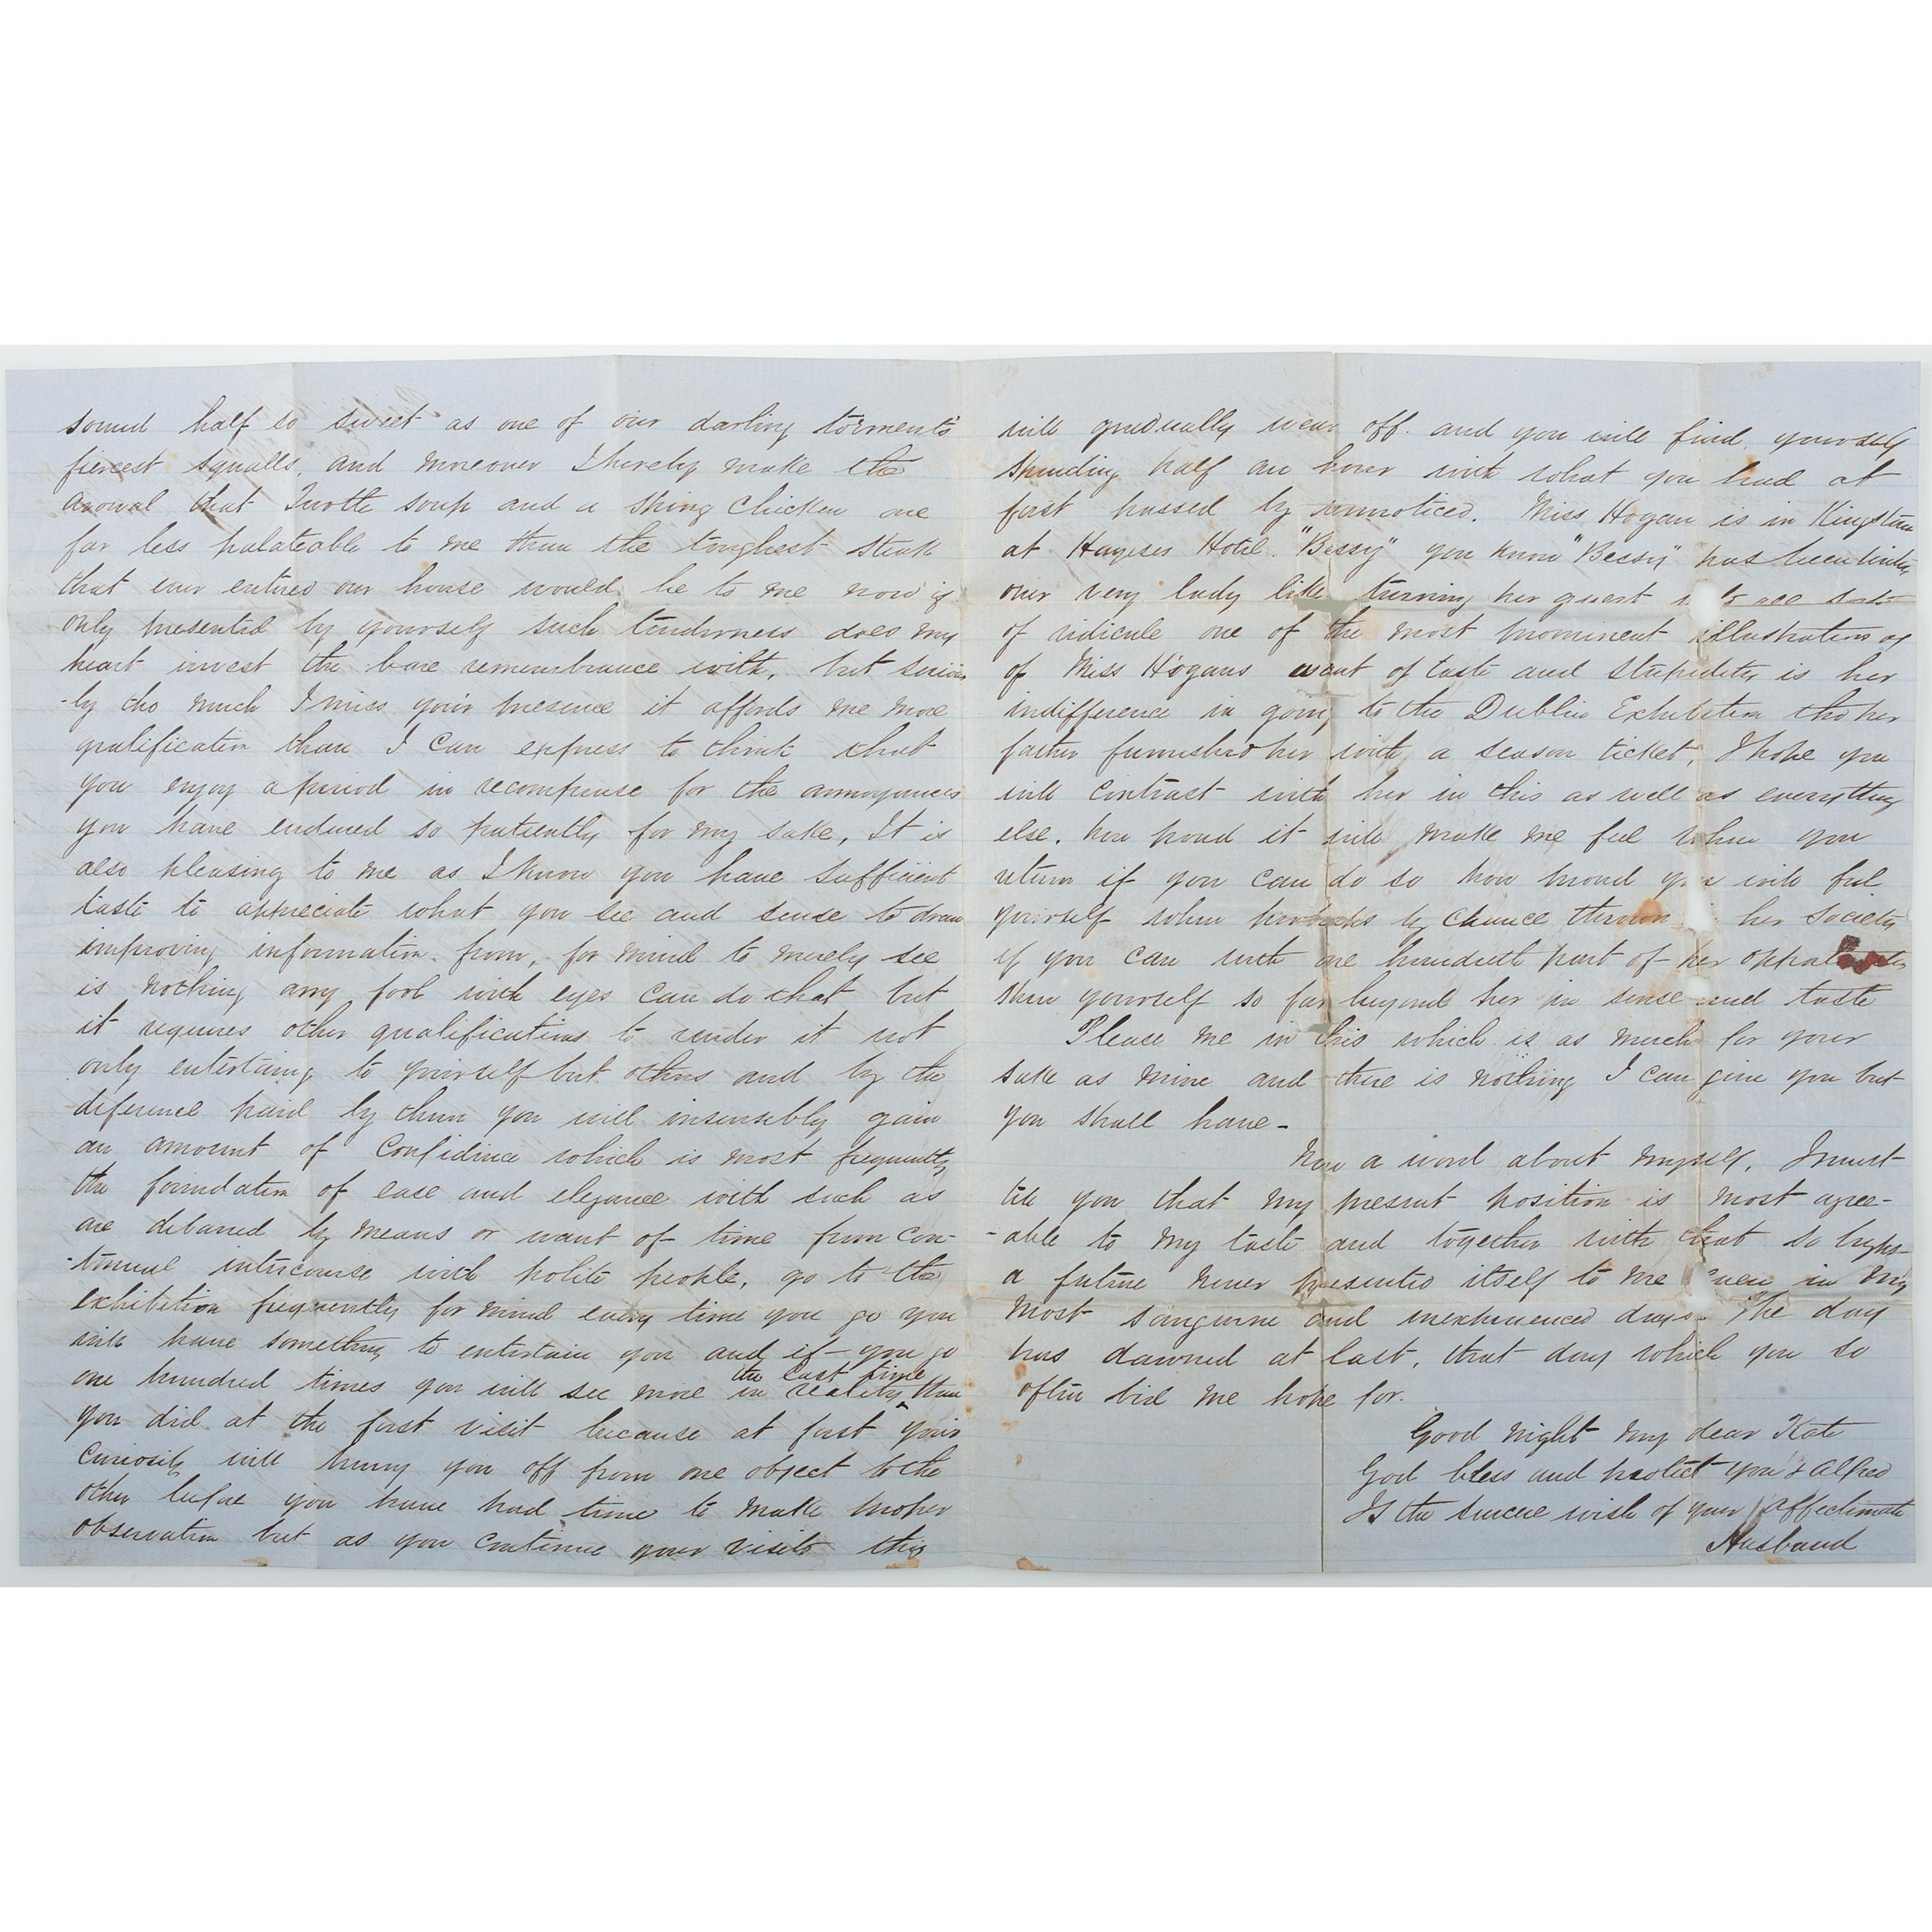 sound half so sweet as one of our darling torments
fiercest squalls, and moreover I hereby make the
avowal that Turtle soup and a spring Chicken are
far less palateable to me than the toughest steak
that ever entered our house would be to me now if
only presented by yourself such tenderness does my
heart invest the bare remembrance with, but serious
-ly tho much I miss your presence it affords me more
gratification than I can express to think that
you enjoy a period in recompense for the annoyances
you have endured so patiently for my sake, It is
also pleasing to me as I know you have sufficient
taste to appreciate what you see and sense to draw
improving information from, for mind to merely see
is nothing any fool with eyes can do that but
it requires other qualifications to render it not
only entertaing to yourself but others and by the
deference paid by them you will insensibly gain
an amount of Confidence which is most frequently
the foundation of ease and elegance with such as
are debarred by means or want of time from con-
-tinual intercourse with polite people, go to the
exhibition frequently for mind every time you go you
will have something to entertain you and if you go
one hundred times you will see more in reality the last time than
you did at the first visit because at first your
curiosity will hurry you off from one object to the
other before you have had time to make proper
observation but as you continue your visits this
will gradually wear off. and you will find yourself
spending half an hour with what you had at
first passed by unnoticed. Miss Hogan is in Kingstown
at Hayses Hotel. "Bessy" you know "Bessy" has been
our very lady like turning her guest
of ridicule one of the most prominent illustrations of
of Miss Hogans want of taste and stupidity is her
indifference in going to the Dublin Exhibition tho her
father furnished her with a season ticket, I hope you
will contrast with her in this as well as everything
else. how proud it will make me feel when you
return if you can do so how proud you will feel
yourself when perhaps by chance thrown her society
if you can with one hundredth part of her
shew yourself so far beyond her in sense and taste
Please me in this which is as much for your
sake as mine and there is nothing I can give you but
you shall have -
Now a word about myself, I must
tell you that my present position is most agree-
-able to my taste and together with that so bright
a future never presented itself to me even in my
most sanguine and inexperienced days. The day
has dawned at last, that day which you so
often bid me hope for.
Good night my dear Kate
God bless and protect you & Alfred
Is the sincere wish of your affectionate
Husband